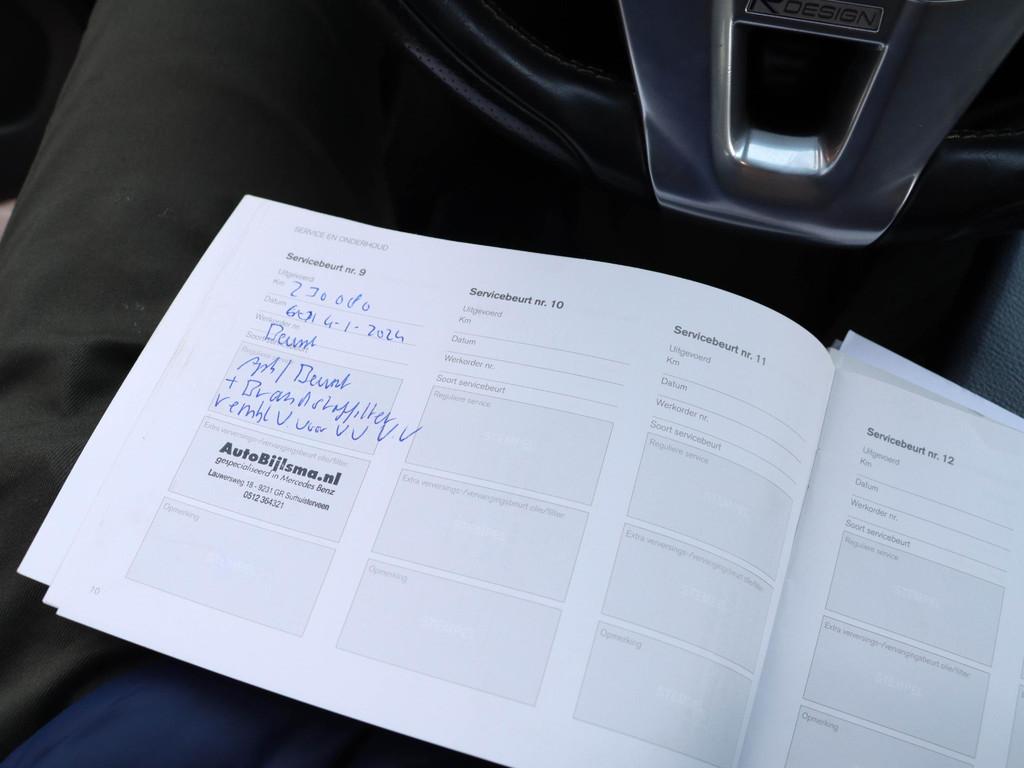 R-DESIGN
SERVICE EN ONDERHOUD
Servicebeurt nr. 9
Uitgevoerd
Km 230 080
Datum 4-1-2024
Werkorder nr.
Beurt
Reguliere
Beurt
+ Brandstoffilter
V V V V
Extra verversings-/vervangingsbeurt olie/filter:
AutoBijlsma.nl
gespecialiseerd in Mercedes Benz
Lauwersweg 18 - 9231 GR Surhuisterveen
0512 364321
Opmerking
10
Servicebeurt nr. 10
Uitgevoerd
Km
Datum
Werkorder nr.
Soort servicebeurt
Reguliere service
STEMPEL
Extra verversings-/vervangingsbeurt olie/filter:
STEMPEL
Opmerking
STEMPEL
Servicebeurt nr. 11
Uitgevoerd
Km
Datum
Werkorder nr.
Soort servicebeurt
Reguliere service
STEMPEL
Extra verversings-/vervangingsbeurt olie/filter:
STEMPEL
Opmerking
STEMPEL
Servicebeurt nr. 12
Uitgevoerd
Km
Datum
Werkorder nr.
Soort servicebeurt
Reguliere service
STEMPEL
Extra verversings-/vervangingsbeurt olie/filter:
STEMPEL
Opmerking